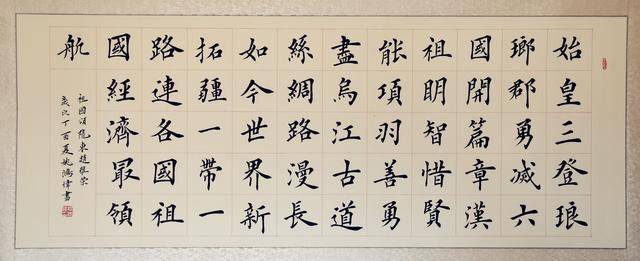 始皇三登琅
瑯郡勇滅六
國開篇章漢
祖明智惜賢
能項羽善勇
盡烏江古道
絲綢路漫長
如今世界新
拓疆一帶一
路連各國祖
國經濟最領
航
祖国頌
丁酉夏姚鴻偉書